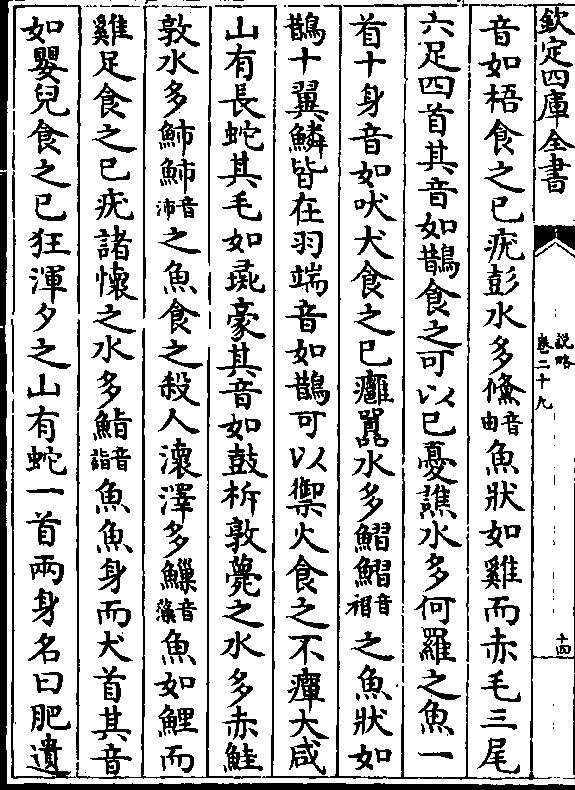 欽定四庫全書
說略
卷二十九
十四
音如梧食之已疣彭水多鯈音由魚狀如雞而赤毛三尾
六足四首其音如鵲食之可以已憂譙水多何羅之魚一
首十身音如吠犬食之已癰囂水多鰼鰼音褶之魚狀如
鵲十翼鱗皆在羽端音如鵲可以禦火食之不癉大咸
山有長蛇其毛如彘豪其音如鼓柝敦薨之水多赤鮭
敦水多䰽䰽音沛之魚食之殺人瀤澤多鱲音獵魚如鯉而
雞足食之已疣諸懷之水多鮨音詣魚魚身而犬首其音
如嬰兒食之已狂渾夕之山有蛇一首兩身名曰肥遺